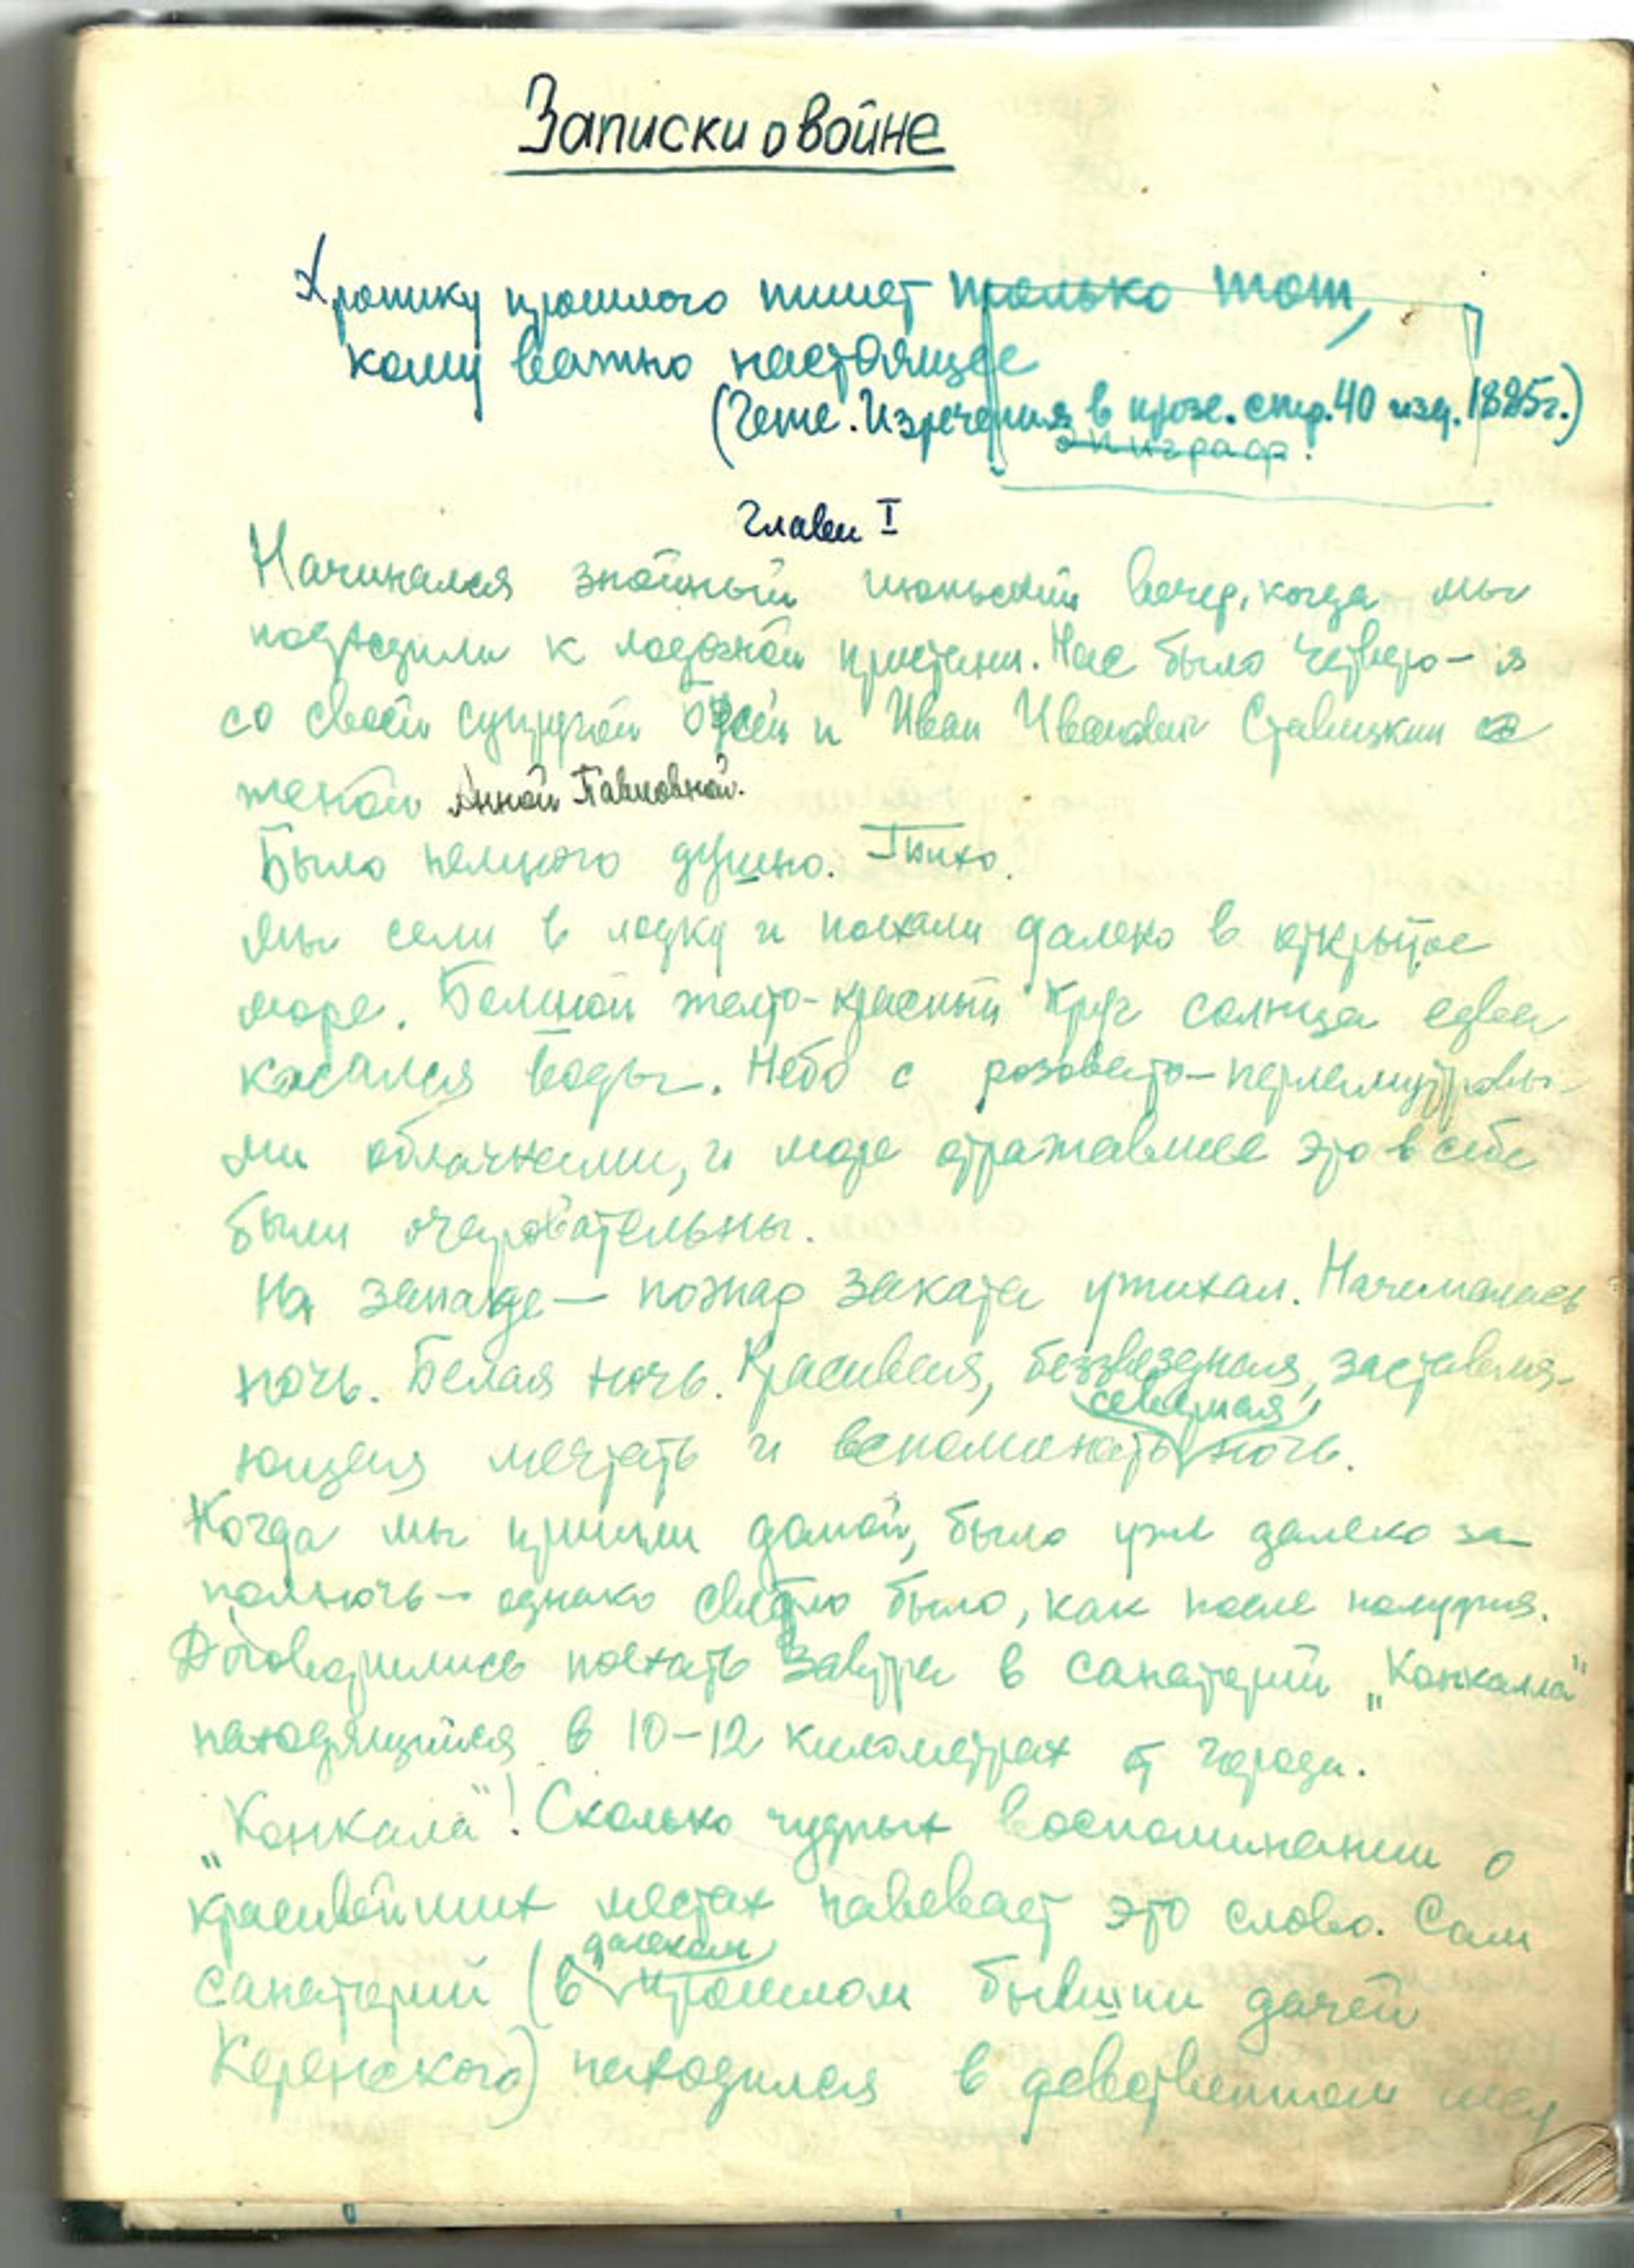 Записки о войне
Хронику прошлого пишет только тот,
кому важно настоящее
(Гете. Изречения в прозе. стр. 40 изд. 1885г.)
эпиграф.
Глава I
Начинался знойный июньский вечер, когда мы
подходили к лодочной пристани. Нас было четверо – я
со своей супругой и Иван Иванович Ставицкий с
женой Анной Павловной.
Было немного душно. Тихо.
Мы сели в лодку и поехали далеко в открытое
море. Большой желто-красный круг солнца едва
касался воды. Небо с розовато-перламутровы-
ми облачками, и море отражавшее это в себе
были очаровательны.
На западе – пожар заката утихал. Начиналась
ночь. Белая ночь. Красивая, беззвездная, заставля-
северная
ющая мечтать и вспоминать ночь.
Когда мы пришли домой, было уже далеко за
полночь – однако светло было, как после полудня.
Договорились поехать завтра в санаторий „Конкала"
находящийся в 10–12 километрах от города.
„Конкала"! Сколько чудных воспоминаний о
красивейших местах навевает это слово. Сам
далеком
санаторий (в прошлом бывший дачей
Керенского) находился в девственном лесу